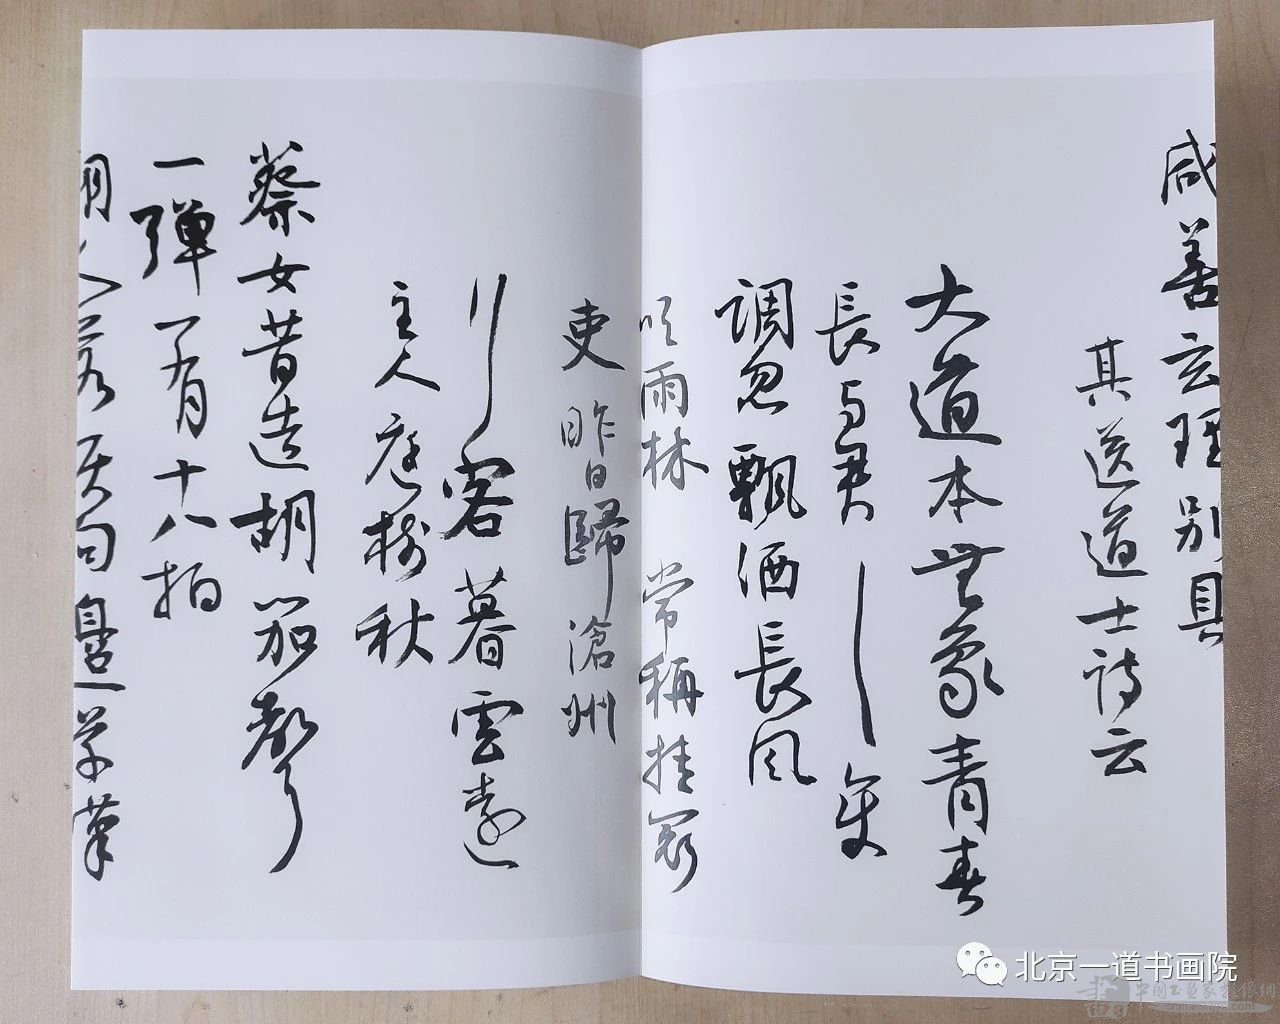 咸善玄理别具
其送道士诗云
大道本無象青春
長与君
调忽飘洒長风
吹雨林 常稱挂冠
吏昨日歸滄州
行客暮雲遠
主人庭樹秋
蔡女昔造胡笳聲
一弹一有十八拍
胡人落邊草漢
北京一道书画院